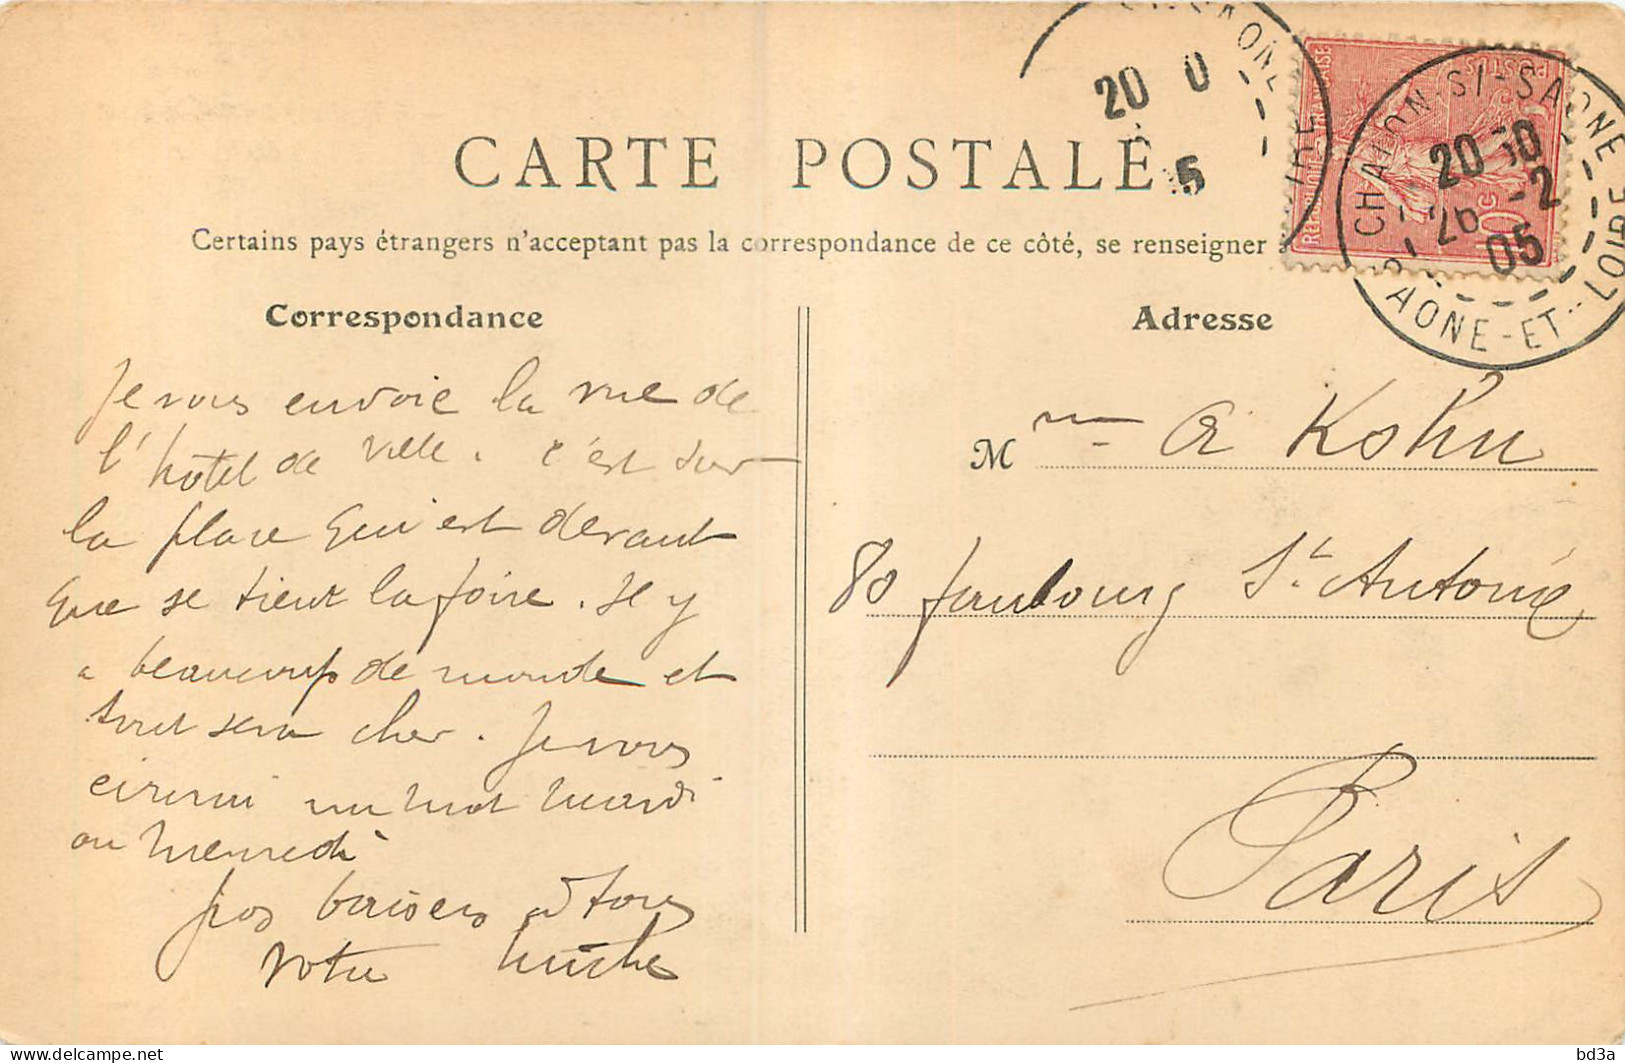 CARTE POSTALE
Certains pays étrangers n'acceptant pas la correspondance de ce côté, se renseigner
Correspondance
Je vous envoie la vue de
l'hôtel de ville. C'est sur
la place qui est devant
que se tient la foire. Il y
a beaucoup de monde et
tout sera cher. Je vous
un mot mardi
ou mercredi
gros baisers à tous
votre
Adresse
Mme A Kohn
80 faubourg St Antoine
Paris
CHALON-S/-SAONE
SAONE-ET-LOIRE
20 30
26 -2
05
20 0
5
POSTES
10c
bd3a